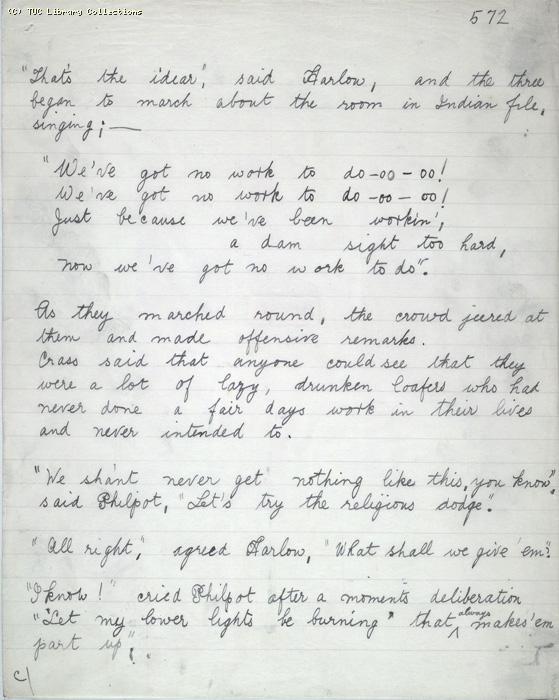 (C) TUC Library Collections
572
"That's the idear", said Harlow, and the three
began to march about the room in Indian file,
singing; —
"We've got no work to do-oo-oo!
We've got no work to do-oo-oo!
Just because we've been workin',
a dam sight too hard,
Now we've got no work to do".
As they marched round, the crowd jeered at
them and made offensive remarks.
Crass said that anyone could see that they
were a lot of lazy, drunken loafers who had
never done a fair days work in their lives
and never intended to.
"We shan't never get nothing like this, you know",
said Philpot, "Let's try the religious dodge".
"All right", agreed Harlow, "What shall we give 'em"?
"I know!" cried Philpot after a moments deliberation
"'Let my lower lights be burning' that always makes 'em
part up".
c/